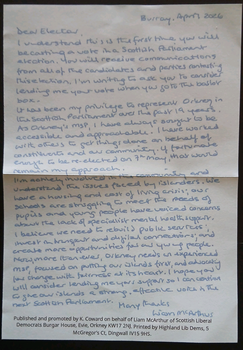 Burray, April 2026
Dear Elector,
I understand this is the first time you will
be casting a vote in a Scottish Parliament
election. You will receive communications
from all of the candidates and parties contesting
this election. I'm writing to ask you to consider
lending me your vote when you go to the ballot
box.
It has been my privilege to represent Orkney in
the Scottish Parliament over the past 19 years.
As Orkney's MSP, I have always sought to be
accessible and approachable. I have worked
with others to get things done on behalf of
constituents and our community. If fortunate
enough to be re-elected on 7th May, that would
remain my approach.
community and
understand the issues faced by islanders. We
have a housing and cost of living crisis; our
schools are struggling to meet the needs of
pupils and young people have voiced concerns
about the lack of specialist mental health support.
I believe we need to rebuild public services,
invest in transport and digital connections, and
create more opportunities for our young people.
More than ever, Orkney needs an experienced
MSP, focused on putting our islands first, and advocating
for change with fairness at its heart. I hope you
will consider lending me your support as I
to give our islands a strong, effective voice in the
next Scottish Parliament.
Many thanks
Liam McArthur
Published and promoted by K. Coward on behalf of Liam McArthur of Scottish Liberal
Democrats Burgar House, Evie, Orkney KW17 2NJ. Printed by Highland Lib Dems, 5
McGregor's Ct, Dingwall IV15 9HS.